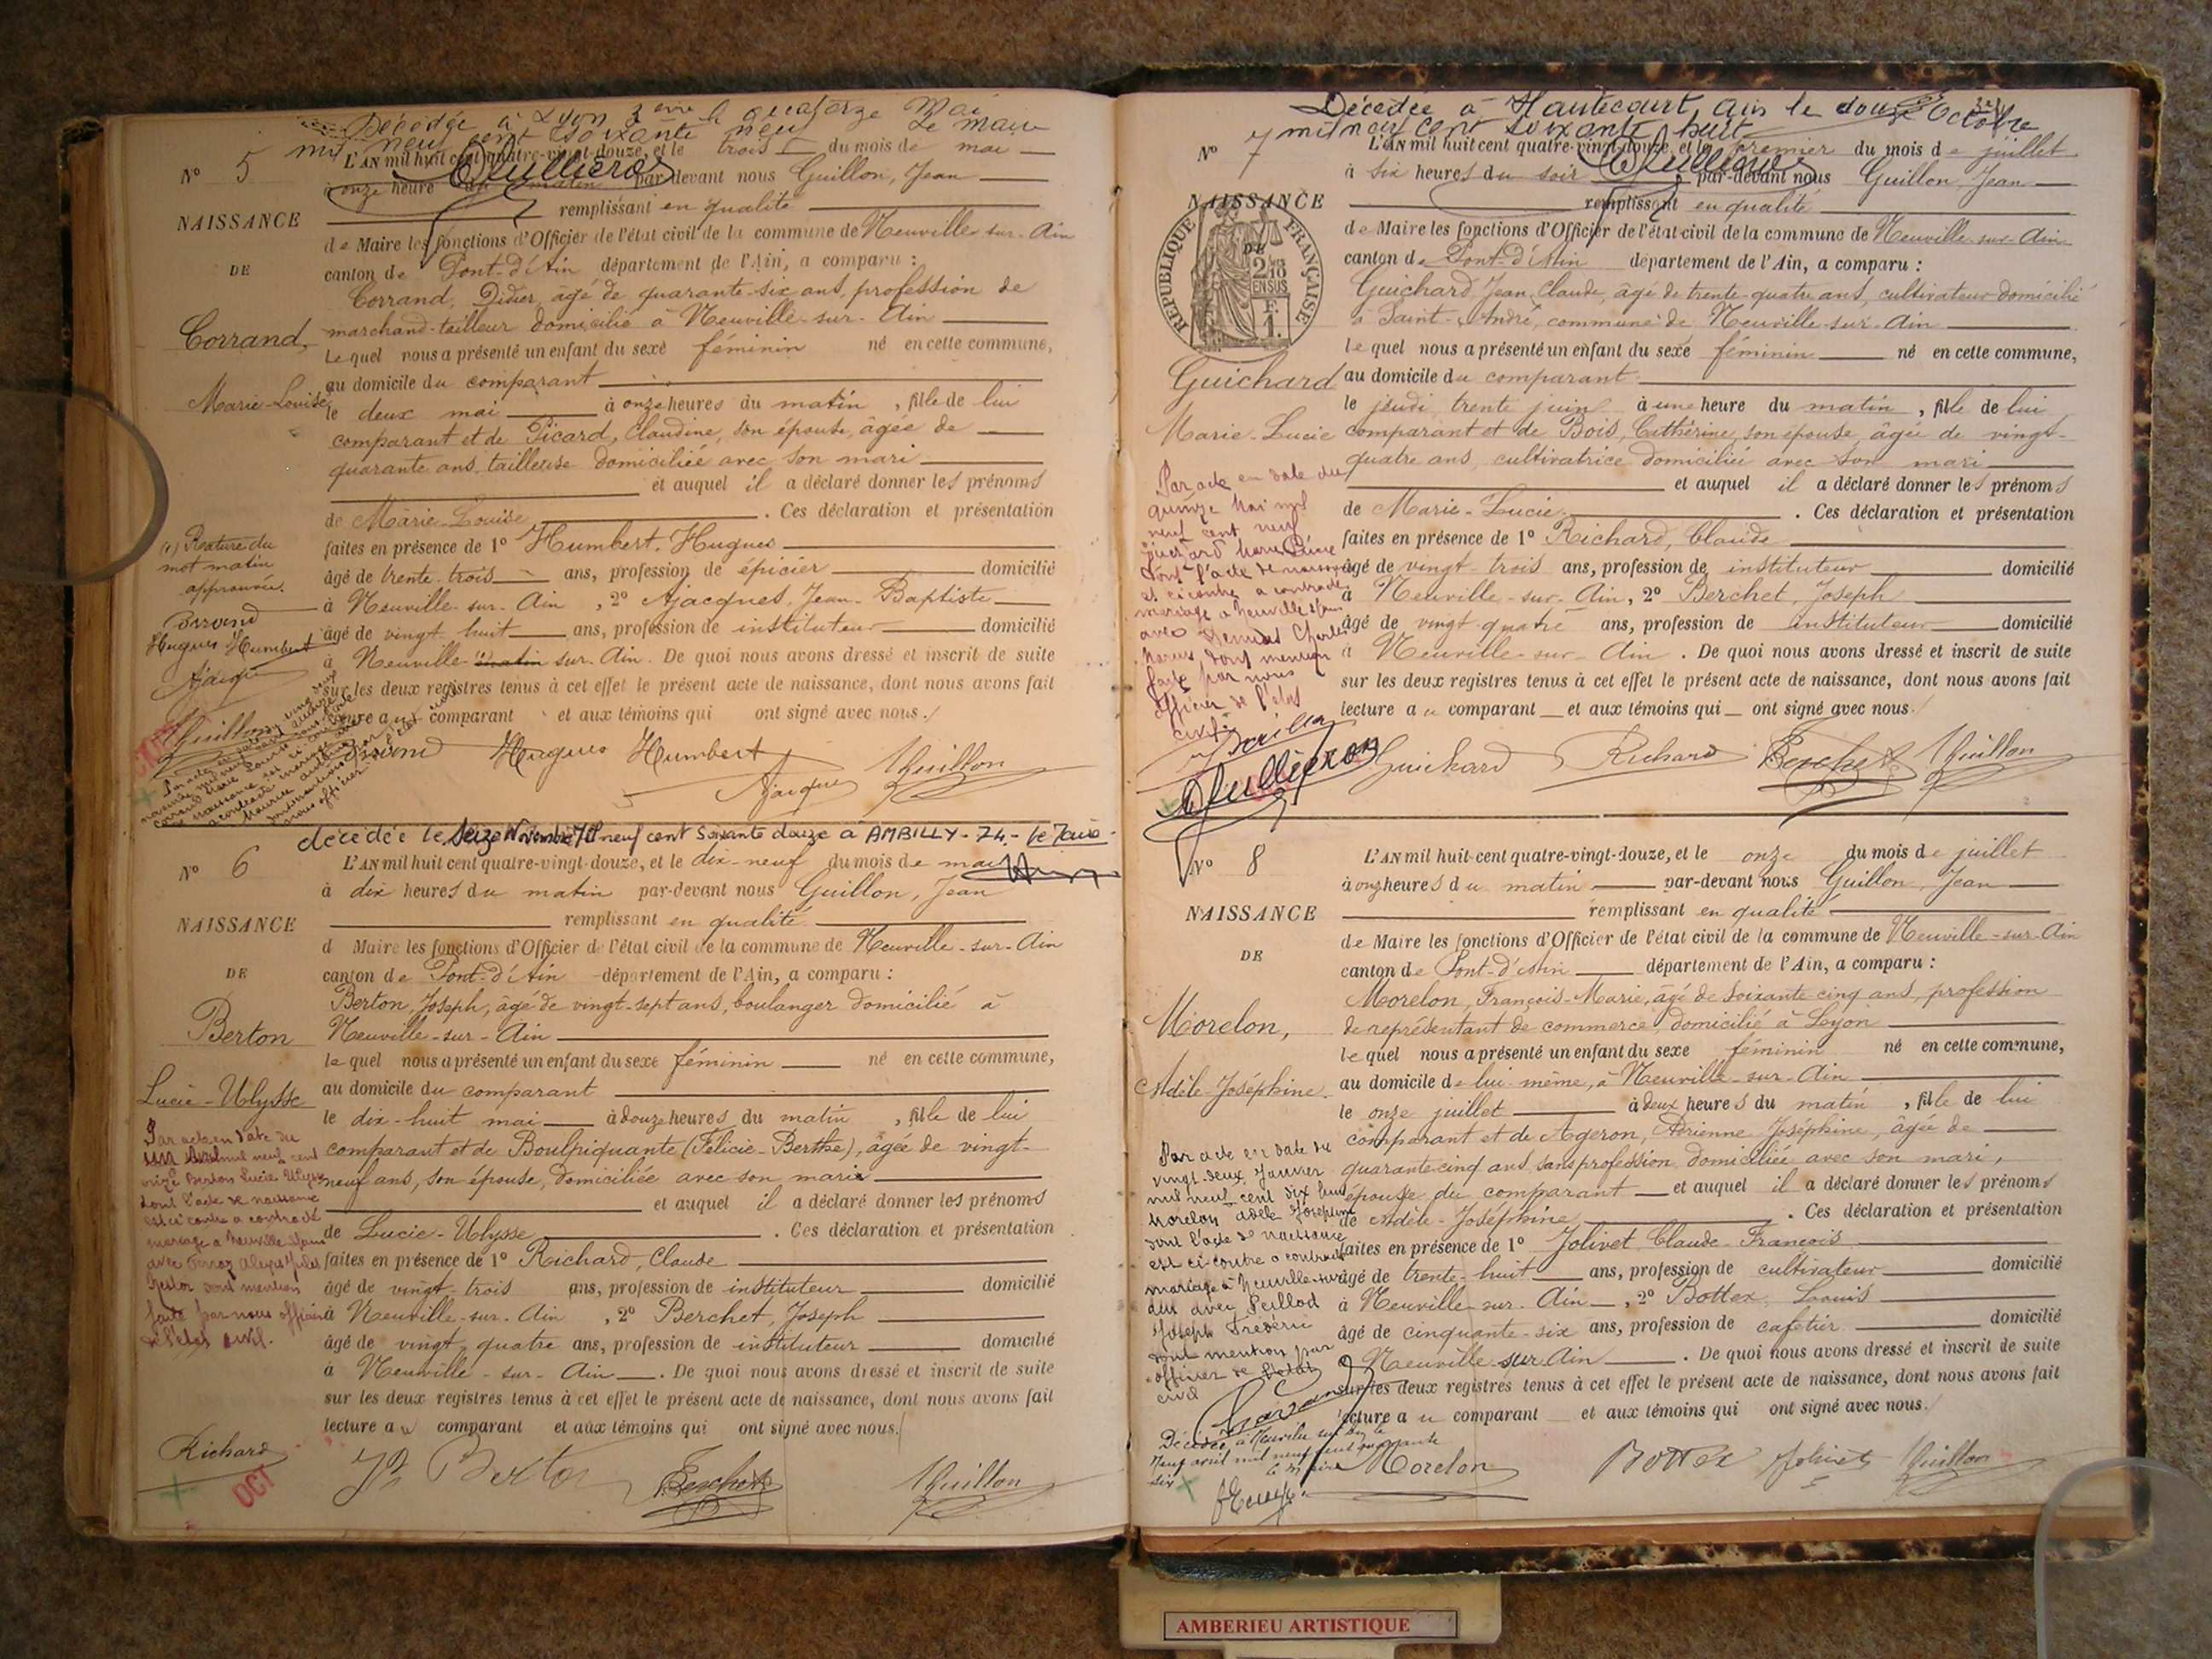 Décédée à Lyon 3eme le quatorze Mai
mil neuf cent soixante neuf Le Maire
N° 5
L'AN mil huit cent quatre-vingt-douze, et le trois du mois de mai
à onze heure du matin par-devant nous Guillon, Jean
NAISSANCE
remplissant en qualité
de Maire les fonctions d'Officier de l'état civil de la commune de Neuville-sur-Ain
DE
canton de Pont-d'Ain département de l'Ain, a comparu :
Corrand, Didier, âgé de quarante-six ans, profession de
Corrand,
marchand-tailleur domicilié à Neuville-sur-Ain
lequel nous a présenté un enfant du sexe féminin né en cette commune,
au domicile du comparant
Marie-Louise
le deux mai à onze heures du matin, fille de lui
comparant et de Picard, Claudine, son épouse, âgée de
quarante ans, tailleuse domiciliée avec son mari
et auquel il a déclaré donner les prénoms
de Marie-Louise. Ces déclaration et présentation
(1) Rature du
mot matin
approuvée.
faites en présence de 1° Humbert, Hugues
âgé de trente-trois ans, profession de épicier domicilié
à Neuville-sur-Ain, 2° Ajacques, Jean-Baptiste
Corrand
Hugues Humbert
âgé de vingt-huit ans, profession de instituteur domicilié
à Neuville (1) matin sur-Ain. De quoi nous avons dressé et inscrit de suite
sur les deux registres tenus à cet effet le présent acte de naissance, dont nous avons fait
lecture au comparant et aux témoins qui ont signé avec nous./
Guillon
Corrand Hugues Humbert
Ajacques Guillon
décédée le Seize Novembre Mil neuf cent Soixante douze à AMBILLY - 74 - le Maire -
N° 6
L'AN mil huit cent quatre-vingt-douze, et le dix-neuf du mois de mai
à dix heures du matin par-devant nous Guillon, Jean
NAISSANCE
remplissant en qualité
d Maire les fonctions d'Officier de l'état civil de la commune de Neuville-sur-Ain
DE
canton de Pont-d'Ain département de l'Ain, a comparu :
Berton, Joseph, âgé de vingt-sept ans, boulanger domicilié à
Berton
Neuville-sur-Ain
lequel nous a présenté un enfant du sexe féminin né en cette commune,
Lucie-Ulysse
au domicile du comparant
le dix-huit mai à douze heures du matin, fille de lui
comparant et de Boulpiquante (Félicie-Berthe), âgée de vingt-
neuf ans, son épouse, domiciliée avec son mari
et auquel il a déclaré donner les prénoms
de Lucie-Ulysse. Ces déclaration et présentation
faites en présence de 1° Richard, Claude
âgé de vingt-trois ans, profession de instituteur domicilié
à Neuville-sur-Ain, 2° Berchet, Joseph
âgé de vingt-quatre ans, profession de instituteur domicilié
à Neuville-sur-Ain. De quoi nous avons dressé et inscrit de suite
sur les deux registres tenus à cet effet le présent acte de naissance, dont nous avons fait
lecture au comparant et aux témoins qui ont signé avec nous./
Par acte en date du
mil neuf cent
onze Berton Lucie Ulysse
dont l'acte de naissance
est ci contre a contracté
mariage à Neuville s/Ain
avec
dont mention
faite par nous officier
de l'état civil.
Richard
OCT
Berton Berchet Guillon
Décédée à Hautecourt, Ain le douze Octobre
mil neuf cent soixante huit
N° 7
L'AN mil huit cent quatre-vingt-douze, et le premier du mois de juillet
à six heures du soir par-devant nous Guillon, Jean
NAISSANCE
remplissant en qualité
de Maire les fonctions d'Officier de l'état civil de la commune de Neuville-sur-Ain
DE
RÉPUBLIQUE FRANÇAISE
2/10
EN SUS
F.
1.
canton de Pont-d'Ain département de l'Ain, a comparu :
Guichard, Jean, Claude, âgé de trente-quatre ans, cultivateur domicilié
à Saint-André, commune de Neuville-sur-Ain
lequel nous a présenté un enfant du sexe féminin né en cette commune,
Guichard
au domicile du comparant
le jeudi trente juin à une heure du matin, fille de lui
Marie-Lucie
comparant et de Bois, Cathérine, son épouse, âgée de vingt-
quatre ans, cultivatrice domiciliée avec son mari
et auquel il a déclaré donner les prénoms
de Marie-Lucie. Ces déclaration et présentation
faites en présence de 1° Richard, Claude
âgé de vingt-trois ans, profession de instituteur domicilié
à Neuville-sur-Ain, 2° Berchet, Joseph
âgé de vingt-quatre ans, profession de instituteur domicilié
à Neuville-sur-Ain. De quoi nous avons dressé et inscrit de suite
sur les deux registres tenus à cet effet le présent acte de naissance, dont nous avons fait
lecture au comparant et aux témoins qui ont signé avec nous./
Par acte en date du
quinze Mai mil
neuf cent neuf
Guichard Marie Lucie
dont l'acte de naissance
est ci contre a contracté
mariage à Neuville s/Ain
avec Charles
dont mention
faite par nous
officier de l'état
civil
Guichard Richard Berchet Guillon
N° 8
L'AN mil huit cent quatre-vingt-douze, et le onze du mois de juillet
à onze heures du matin par-devant nous Guillon, Jean
NAISSANCE
remplissant en qualité
de Maire les fonctions d'Officier de l'état civil de la commune de Neuville-sur-Ain
DE
canton de Pont-d'Ain département de l'Ain, a comparu :
Morelon, François-Marie, âgé de soixante cinq ans, profession
Morelon,
de représentant de commerce, domicilié à Lyon
lequel nous a présenté un enfant du sexe féminin né en cette commune,
Adèle-Joséphine.
au domicile de lui-même, à Neuville-sur-Ain
le onze juillet à deux heures du matin, fille de lui
comparant et de Ageron, Adrienne Joséphine, âgée de
quarante-cinq ans, sans profession, domiciliée avec son mari,
épouse du comparant et auquel il a déclaré donner les prénoms
de Adèle-Joséphine. Ces déclaration et présentation
faites en présence de 1° Jolivet, Claude-François
âgé de trente-huit ans, profession de cultivateur domicilié
à Neuville-sur-Ain, 2° Bottex, Louis
âgé de cinquante-six ans, profession de cafetier domicilié
à Neuville-sur-Ain. De quoi nous avons dressé et inscrit de suite
sur les deux registres tenus à cet effet le présent acte de naissance, dont nous avons fait
lecture au comparant et aux témoins qui ont signé avec nous./
Par acte en date du
vingt-deux Janvier
mil neuf cent dix huit
Morelon Adèle Joséphine
dont l'acte de naissance
est ci-contre a contracté
mariage à Neuville-sur-
Ain avec Peillod
Joseph Frédéric
dont mention par
officier de l'état
civil
Décédée à Neuville sur Ain le
neuf avril mil neuf cent quarante
six Le Maire
Morelon Bottex Jolivet Guillon
AMBERIEU ARTISTIQUE